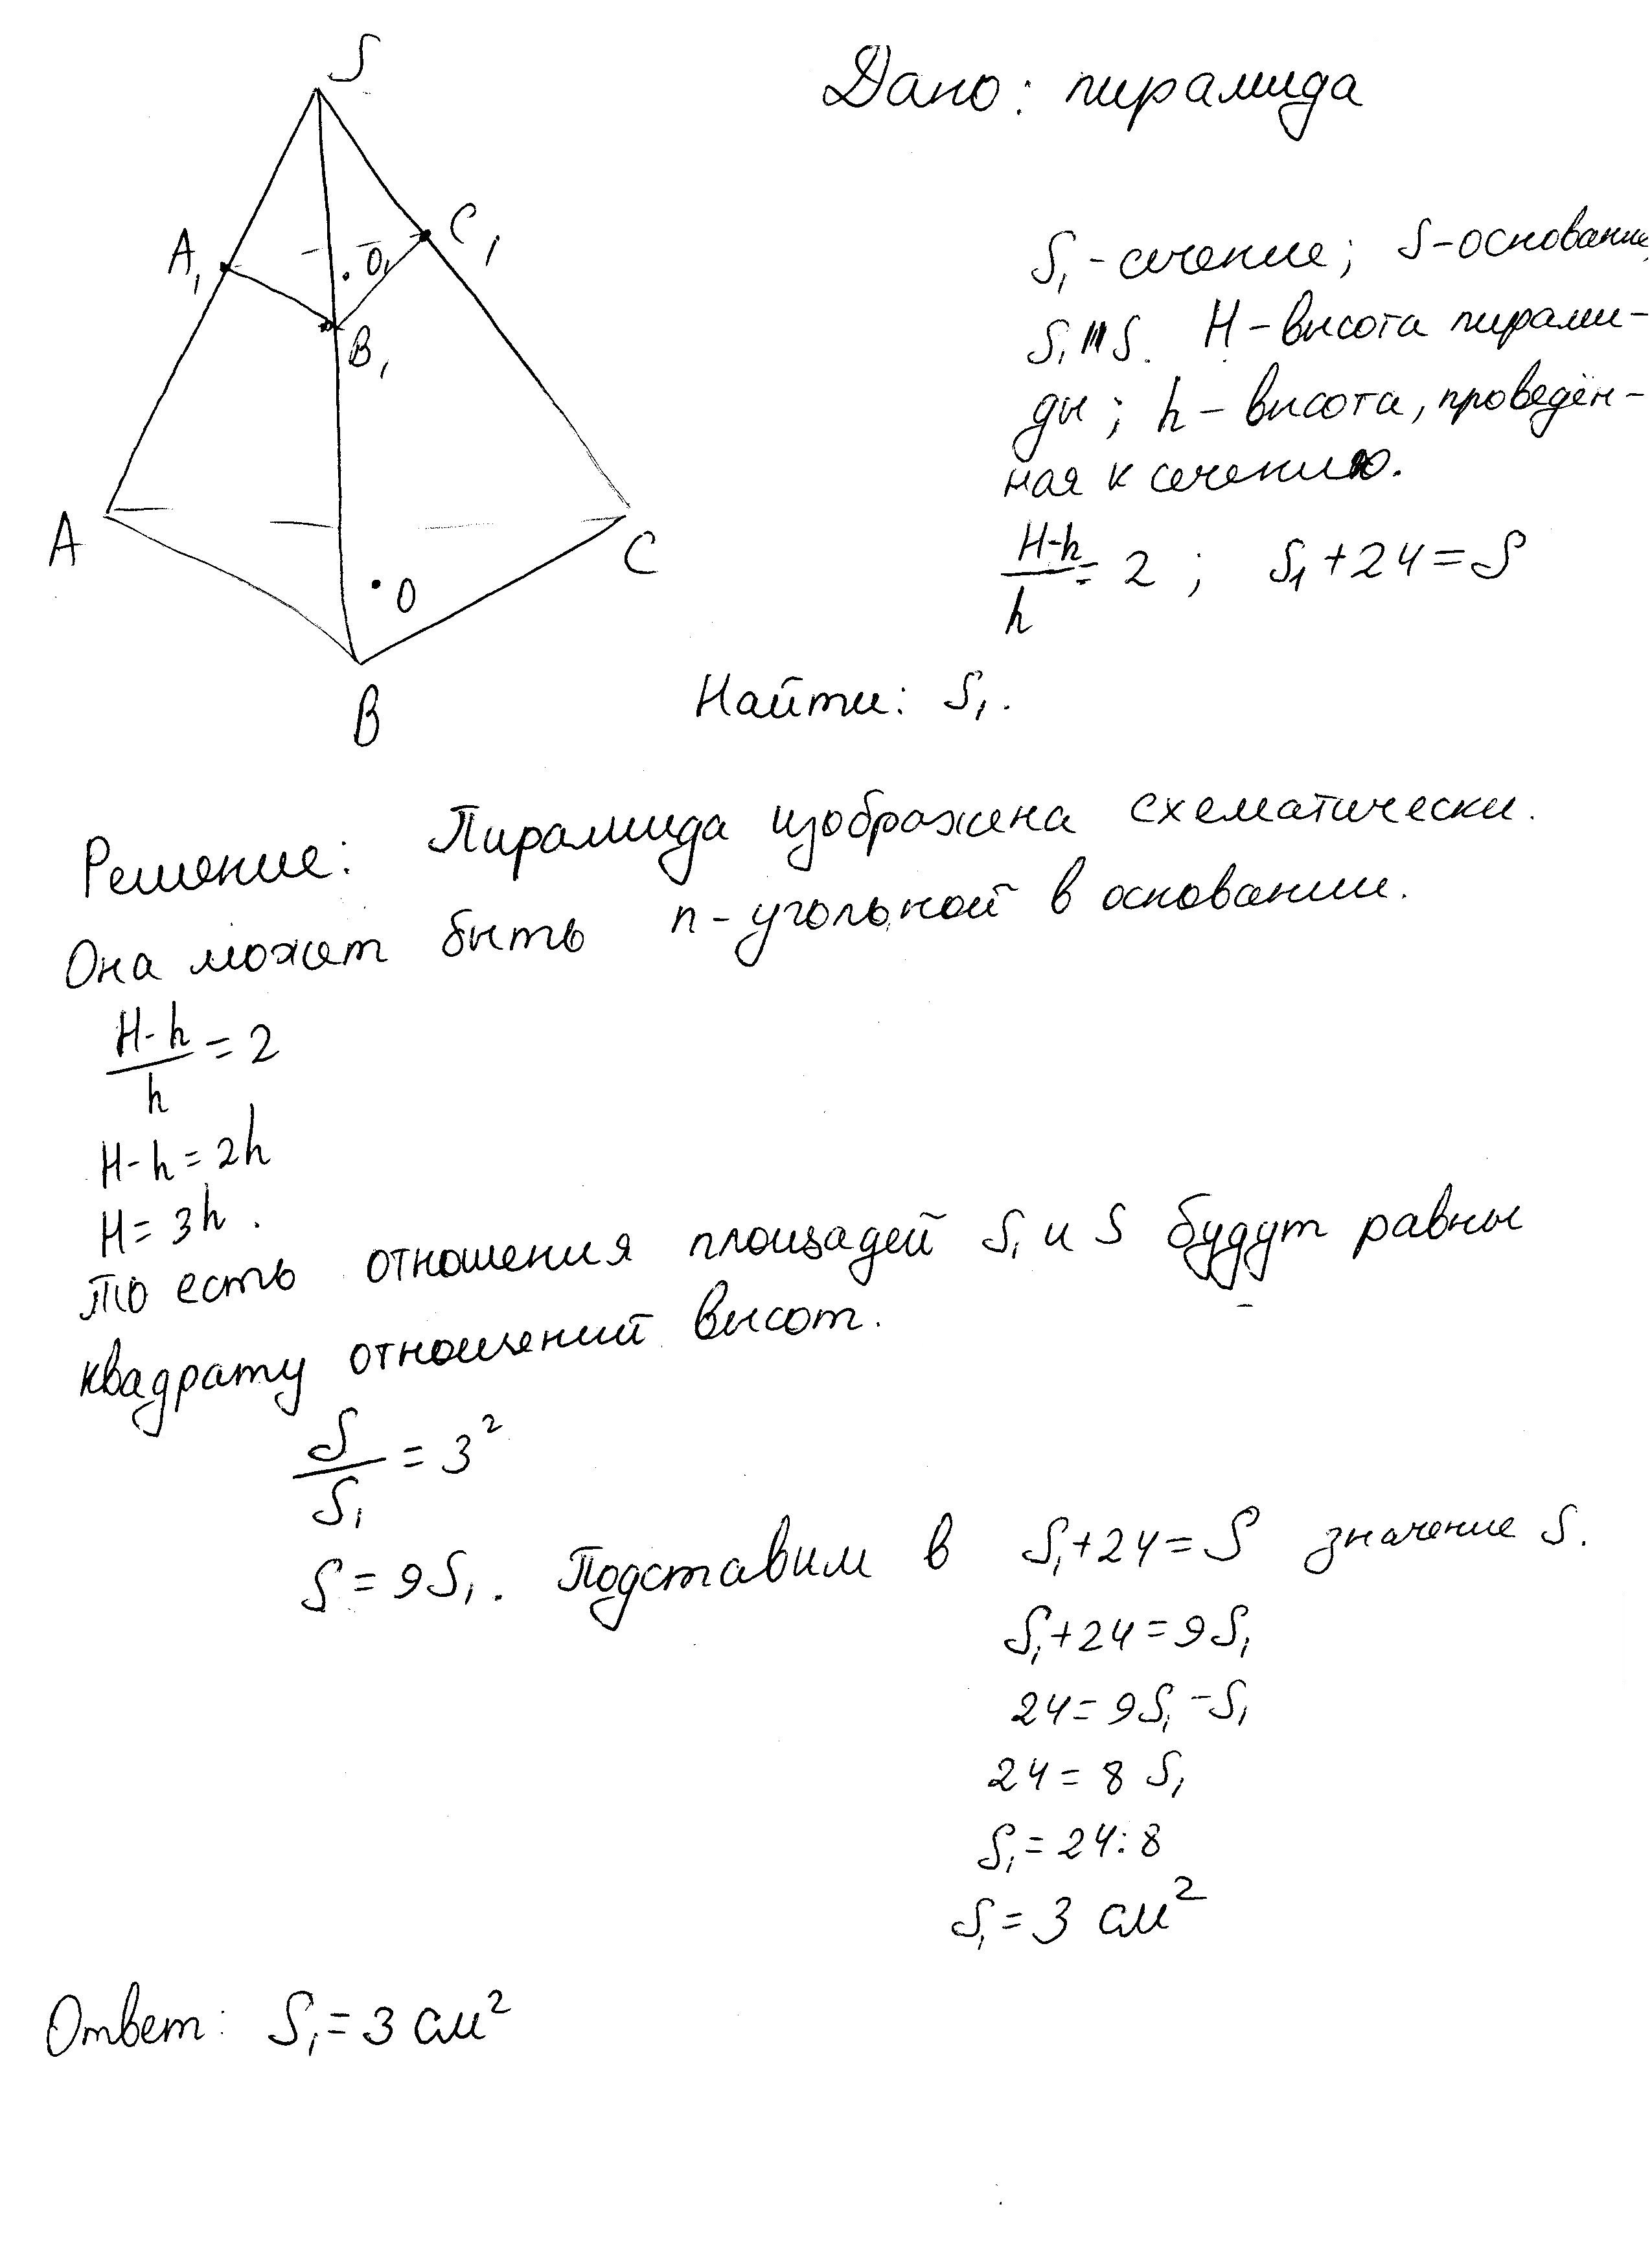 S
Дано: пирамида
A₁
O₁
C₁
B₁
S₁ - сечение; S-основание,
S₁ ॥ S. H - высота пирами-
ды; h - высота, проведён-
ная к сечению.
(H-h)/h = 2 ; S₁ + 24 = S
A
O
C
B
Найти: S₁.
Решение: Пирамида изображена схематически.
Она может быть n-угольной в основании.
(H-h)/h = 2
H-h = 2h
H = 3h.
То есть отношения площадей S₁ и S будут равны
квадрату отношений высот.
S/S₁ = 3²
S = 9S₁. Подставим в S₁+24=S значение S.
S₁+24=9S₁
24=9S₁-S₁
24=8 S₁
S₁=24:8
S₁=3 см²
Ответ: S₁=3 см²